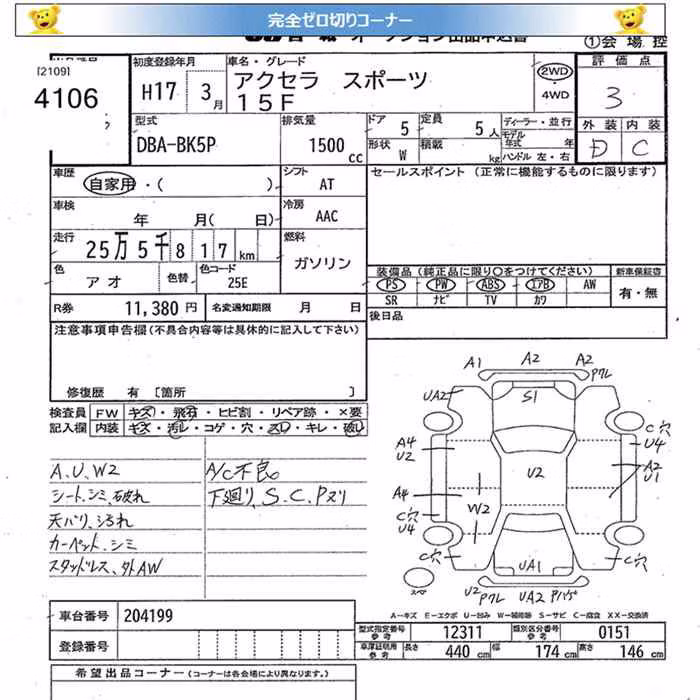 完全ゼロ切りコーナー
①会場控
[2109]
4106
初度登録年月
H17 3月
車名・グレード
アクセラ スポーツ
15F
2WD
4WD
評価点
3
外装 内装
D C
型式
DBA-BK5P
排気量
1500 cc
ドア 5
形状 W
定員 5人
積載 kg
ディーラー・並行
モデル年式 年
ハンドル 左・右
車歴
自家用・( )
シフト
AT
セールスポイント (正常に機能するものに限ります)
車検
年 月( 日)
冷房
AAC
走行
25万5千817km
燃料
ガソリン
色
アオ
色替
色コード
25E
装備品 (純正品に限り○をつけてください)
新車保証書
PS PW ABS エアB AW
SR ナビ TV カワ
有・無
R券 11,380円
名変通知期限 月 日
後日品
注意事項申告欄(不具合内容等は具体的に記入して下さい)
修復歴 有 [箇所 ]
検査員 FW キズ・飛石・ヒビ割・リペア跡・×要
記入欄 内装 キズ・汚レ・コゲ・穴・スレ・キレ・破レ
A、U、W2
シート、シミ、破れ
天バリ、汚れ
カーペット、シミ
スタッドレス、外AW
A/C不良
下廻り、S、C、Pヌリ
A1 A2 A2
Pワレ
UA2 S1
C穴
U4
A4
U2
U2
A2
U1
A4
W2
C穴
U4
C穴
C穴
UA1
スペア
U2
Pワレ
UA2
Pハゲ
A-キズ E-エクボ U-凹み W-補修跡 S-サビ C-腐食 XX-交換済
車台番号 204199
登録番号
型式指定番号 参考 12311 類別区分番号 参考 0151
車庫証明用 参考 長さ 440 cm 幅 174 cm 高さ 146 cm
希望出品コーナー (コーナーは各会場により異なります。)